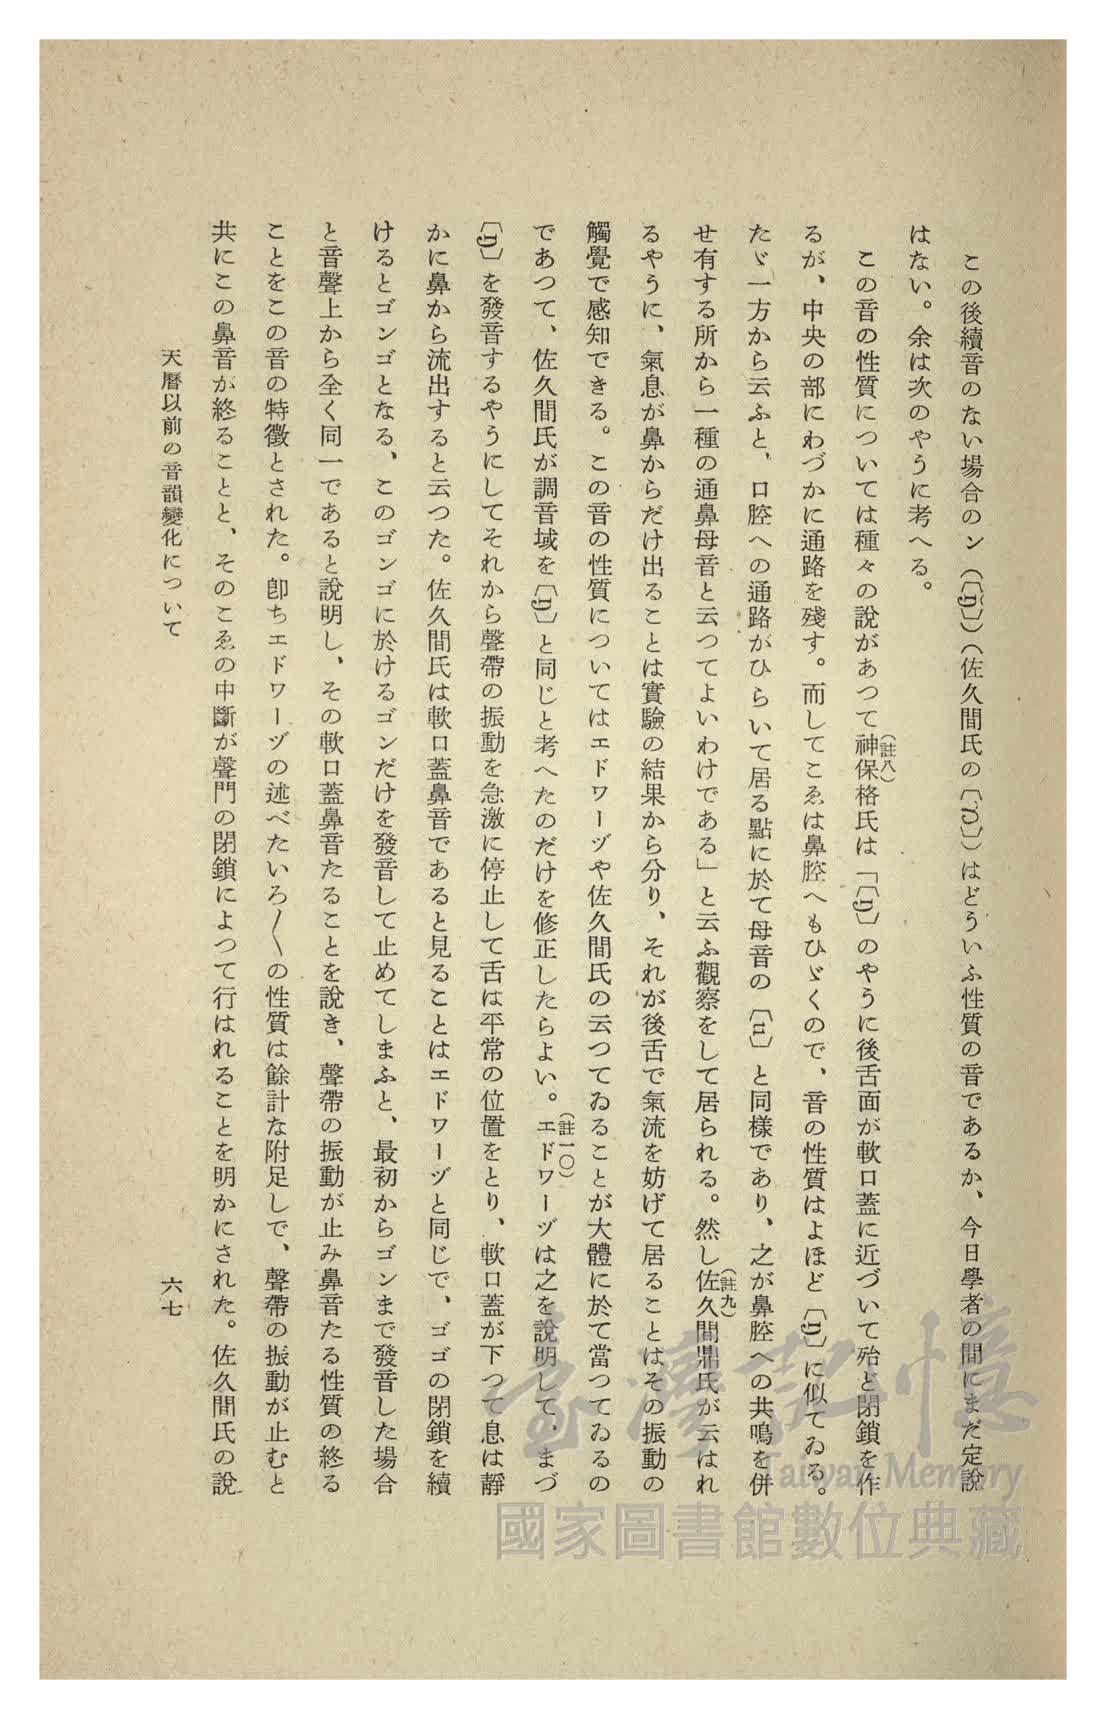 この後續音のない場合のン(〔ŋ〕)(佐久間氏の〔'ŋ〕)はどういふ性質の音であるか、今日學者の間にまだ定說
はない。余は次のやうに考へる。
この音の性質については種々の說があつて神保格氏は「〔ŋ〕のやうに後舌面が軟口蓋に近づいて殆ど閉鎖を作
(註八)
るが、中央の部にわづかに通路を殘す。而してこゑは鼻腔へもひゞくので、音の性質はよほど〔ŋ〕に似てゐる。
たゞ一方から云ふと、口腔への通路がひらいて居る點に於て母音の〔ɯ〕と同樣であり、之が鼻腔への共鳴を併
せ有する所から一種の通鼻母音と云つてよいわけである」と云ふ觀察をして居られる。然し佐久間鼎氏が云はれ
(註九)
るやうに、氣息が鼻からだけ出ることは實驗の結果から分り、それが後舌で氣流を妨げて居ることはその振動の
觸覺で感知できる。この音の性質についてはエドワーヅや佐久間氏の云つてゐることが大體に於て當つてゐるの
であつて、佐久間氏が調音域を〔ŋ〕と同じと考へたのだけを修正したらよい。エドワーヅは之を說明して、まづ
(註一〇)
〔ŋ〕を發音するやうにしてそれから聲帶の振動を急激に停止して舌は平常の位置をとり、軟口蓋が下つて息は靜
かに鼻から流出すると云つた。佐久間氏は軟口蓋鼻音であると見ることはエドワーヅと同じで、ゴゴの閉鎖を續
けるとゴンゴとなる、このゴンゴに於けるゴンだけを發音して止めてしまふと、最初からゴンまで發音した場合
と音聲上から全く同一であると說明し、その軟口蓋鼻音たることを說き、聲帶の振動が止み鼻音たる性質の終る
ことをこの音の特徵とされた。卽ちエドワーヅの述べたいろ〱の性質は餘計な附足しで、聲帶の振動が止むと
共にこの鼻音が終ることと、そのこゑの中斷が聲門の閉鎖によつて行はれることを明かにされた。佐久間氏の說
天曆以前の音韻變化について
六七
臺灣記憶
Taiwan Memory
國家圖書館數位典藏